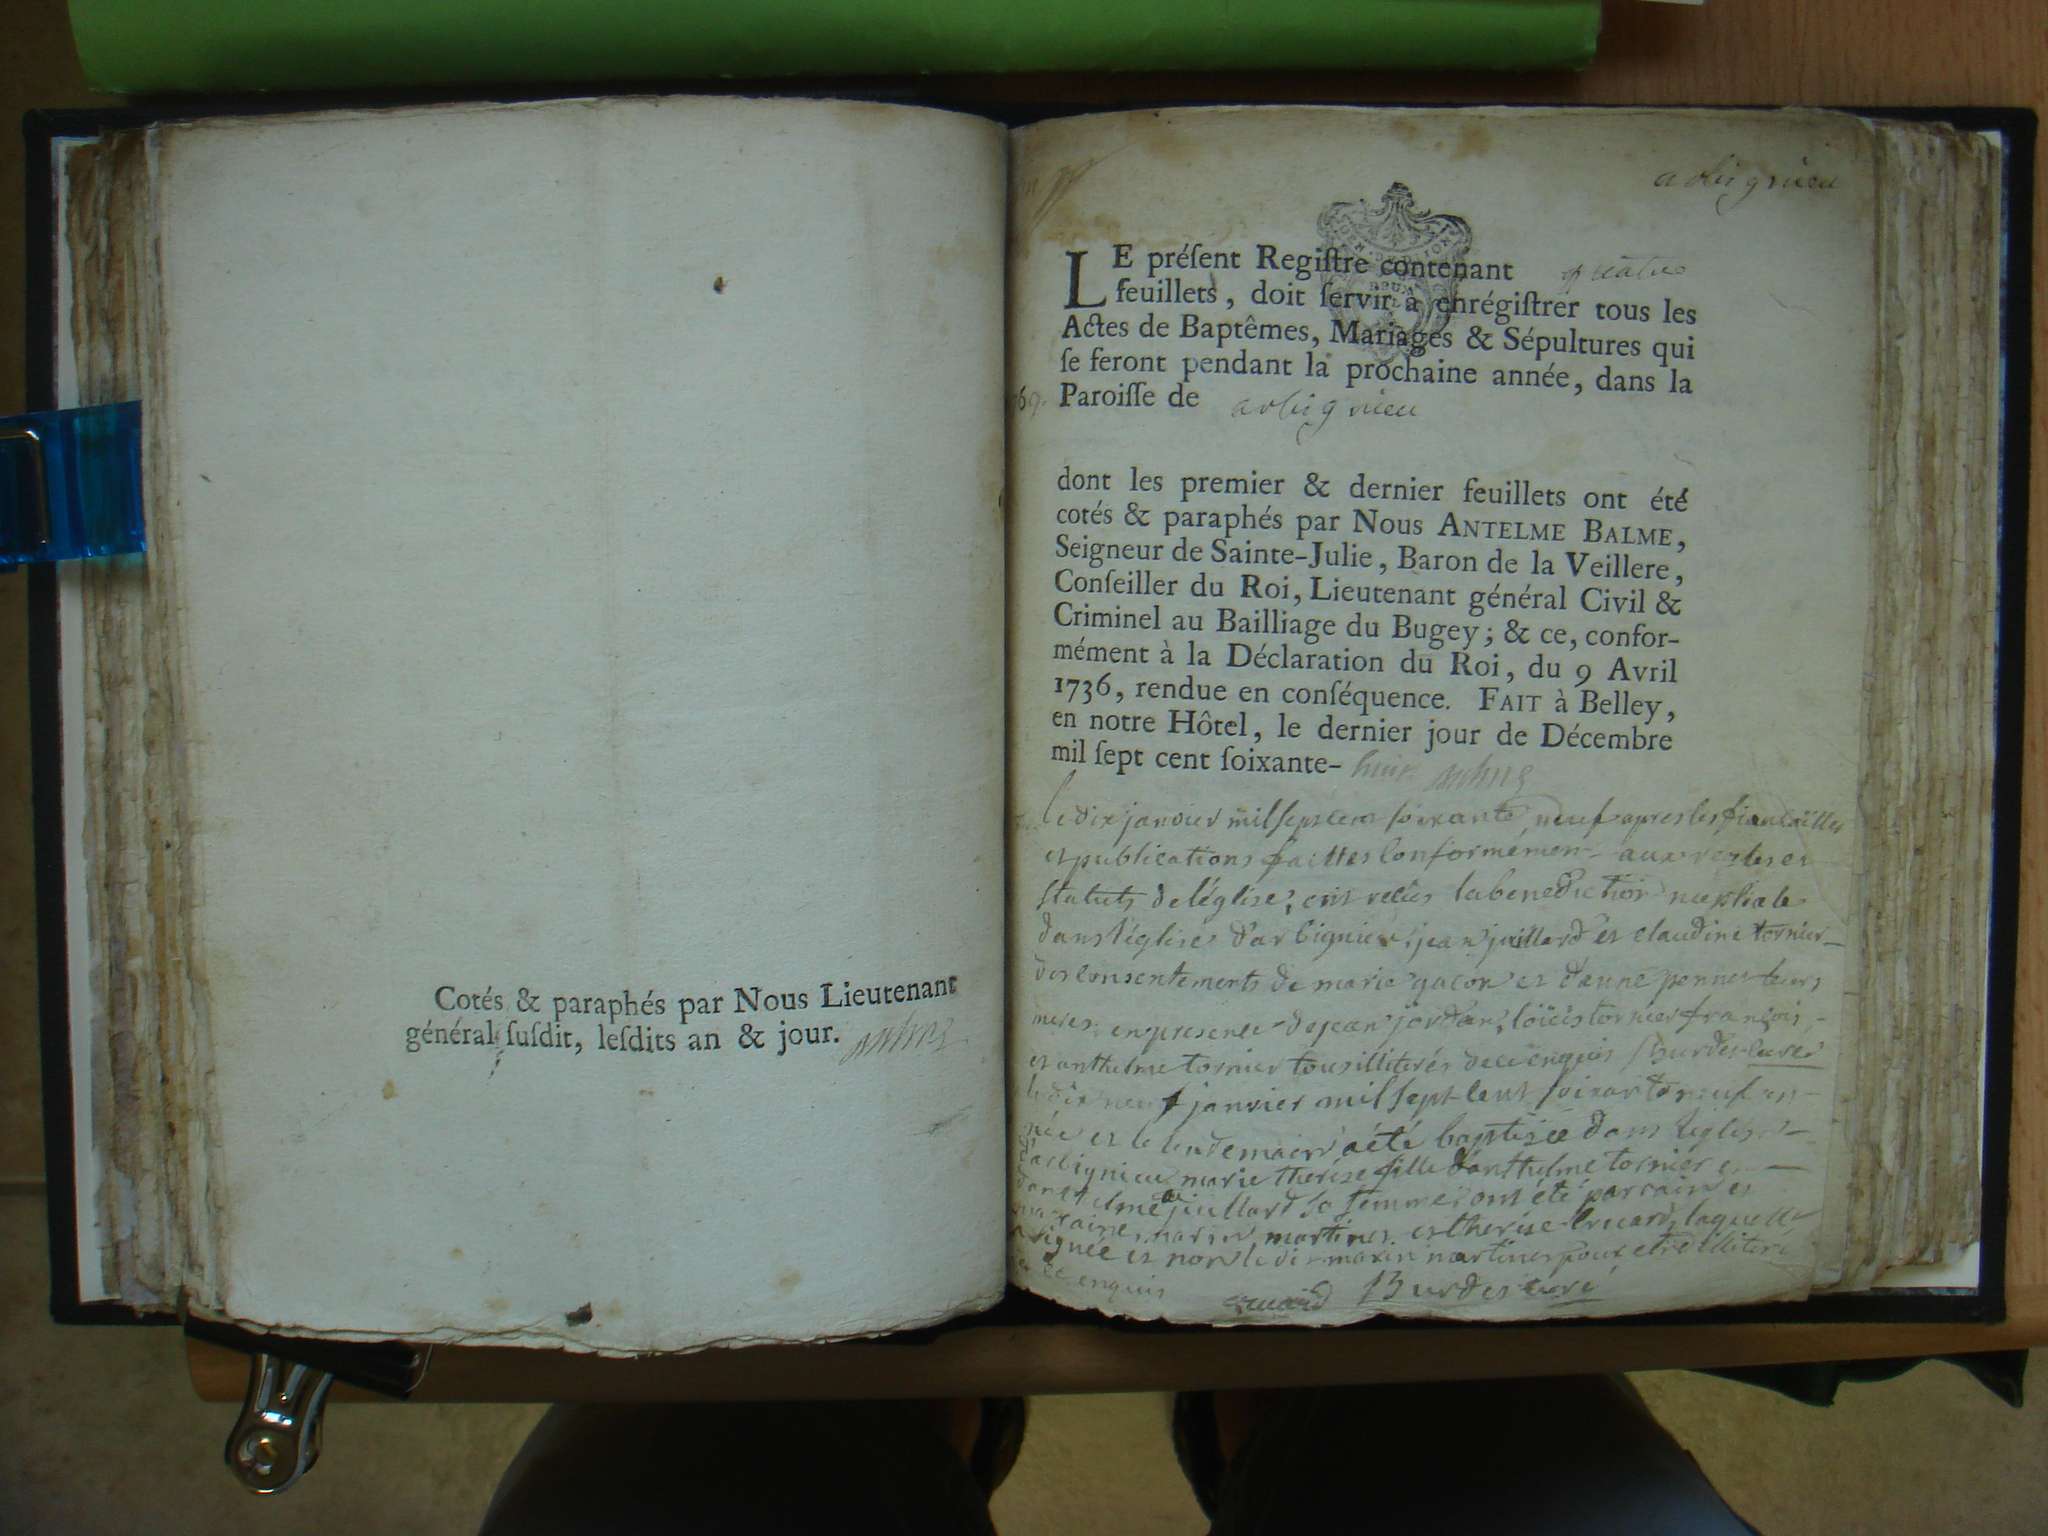 Cotés & paraphés par Nous Lieutenant
général ſuſdit, leſdits an & jour.
arbignieu
LE préſent Regiſtre contenant quatre
feuillets, doit ſervir à enrégiſtrer tous les
Actes de Baptêmes, Mariages & Sépultures qui
ſe feront pendant la prochaine année, dans la
Paroiſſe de arbignieu
dont les premier & dernier feuillets ont été
cotés & paraphés par Nous ANTELME BALME,
Seigneur de Sainte-Julie, Baron de la Veillere,
Conſeiller du Roi, Lieutenant général Civil &
Criminel au Bailliage du Bugey; & ce, confor-
mément à la Déclaration du Roi, du 9 Avril
1736, rendue en conſéquence. FAIT à Belley,
en notre Hôtel, le dernier jour de Décembre
mil ſept cent ſoixante- huit
le dix janvier mil sept cent soixante neuf apres les fiancailles
et publications faittes conformement aux regles et
statuts de l'église, ont recûs la benediction nuptiale
dans l'église d'arbignieu jean juillard et claudine tornier
des consentements de marie gacon et d'anne penner leurs
meres en presence de jean jordan, loüis tornier françois
et anthelme tornier tous illiterés de ce enquis Burdet curé
le dix neuf janvier mil sept cent soixante neuf est
née et le lendemain a été baptisée dans l'église
d'arbignieu marie therese fille d'anthelme tornier et
d'anthelme juillard sa femme ont été parrain et
marraine marin martiner et therese cruard laquelle
a signée et non le dit marin martiner pour etre illiteré
de ce enquis cruard Burdet curé